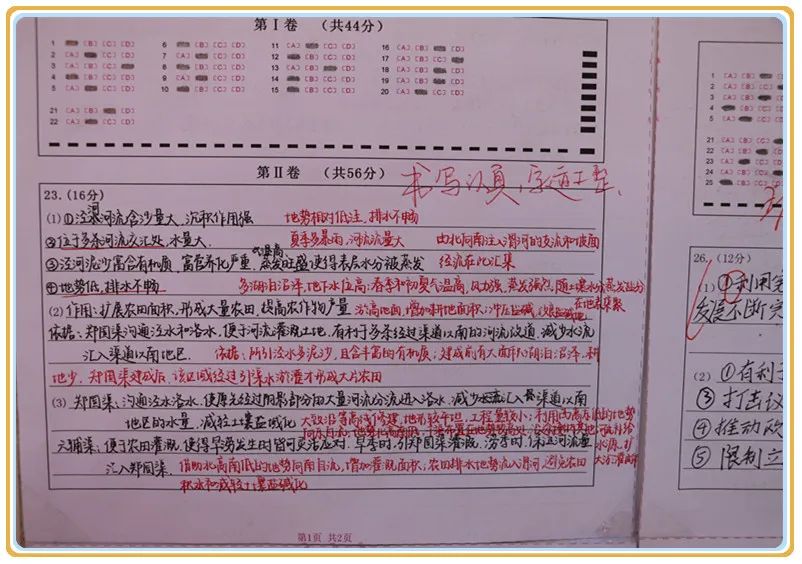 第Ⅰ卷 （共44分）
1 [B] [C] [D]
2 [A] [C] [D]
3 [A] [C] [D]
4 [B] [C] [D]
5 [A] [C] [D]
6 [B] [C] [D]
7 [A] [C] [D]
8 [B] [C] [D]
9 [A] [C] [D]
10 [B] [C] [D]
11 [A] [C] [D]
12 [A] [B] [D]
13 [A] [B] [D]
14 [A] [C] [D]
15 [A] [C] [D]
16 [A] [B] [D]
17 [A] [B] [C]
18 [A] [C] [D]
19 [A] [C] [D]
20 [A] [B] [D]
21 [A] [B] [D]
22 [A] [C] [D]
第Ⅱ卷 （共56分）
书写认真，字迹工整、
23. (16分)
(1) ①泾河河流含沙量大，沉积作用强 地势相对低洼，排水不畅
②位于多条河流交汇处，水量大． 夏季多暴雨，河流流量大 由北向南注入渭河的支流和坡面
③泾河泥沙富含有机质，富营养化严重， 蒸发旺盛使得表层水分被蒸发 径流在此汇集
④地势低，排水不畅 多湖泊沼泽，地下水位高；春季和初夏气温高，风力强，蒸发强烈，
(2) 作用：扩展农田面积，形成大量农田，提高农作物产量 淤高地面，增加耕地面积；冲压盐碱，
依据：郑国渠沟通泾水和洛水，便于河流灌溉土地，有利于多条经过渠道以南的河流改道，减少水流
汇入渠道以南地区． 依据：所引泾水多泥沙，且含丰富的有机质；建成前有大面积湖泊沼泽，耕
地少．郑国渠建成后，该区域经过引渠水淤灌才形成大片农田
(3) 郑国渠：沟通泾水洛水，使原先经过阴影部分的大量河流分流进入洛水，减少水流汇入 渠道以南
地区的水量，减轻土壤盐碱化 大致沿等高线修建，地形较平坦，工程量较小；利用西高东低的地势
六辅渠：便于农田灌溉，使得旱涝发生时皆可灵活应对，旱季时，引郑国渠灌溉，涝季时，保证河流量
汇入郑国渠． 借助水高南低的地势向南自流，增加灌溉面积；农田排水地势流入渭河，避免农田
积水和减轻土壤盐碱化
第1页 共2页
26. (12分)
(1) ①利用
发展不断
(2) ①有利于
③打击议
④推动政
⑤限制立